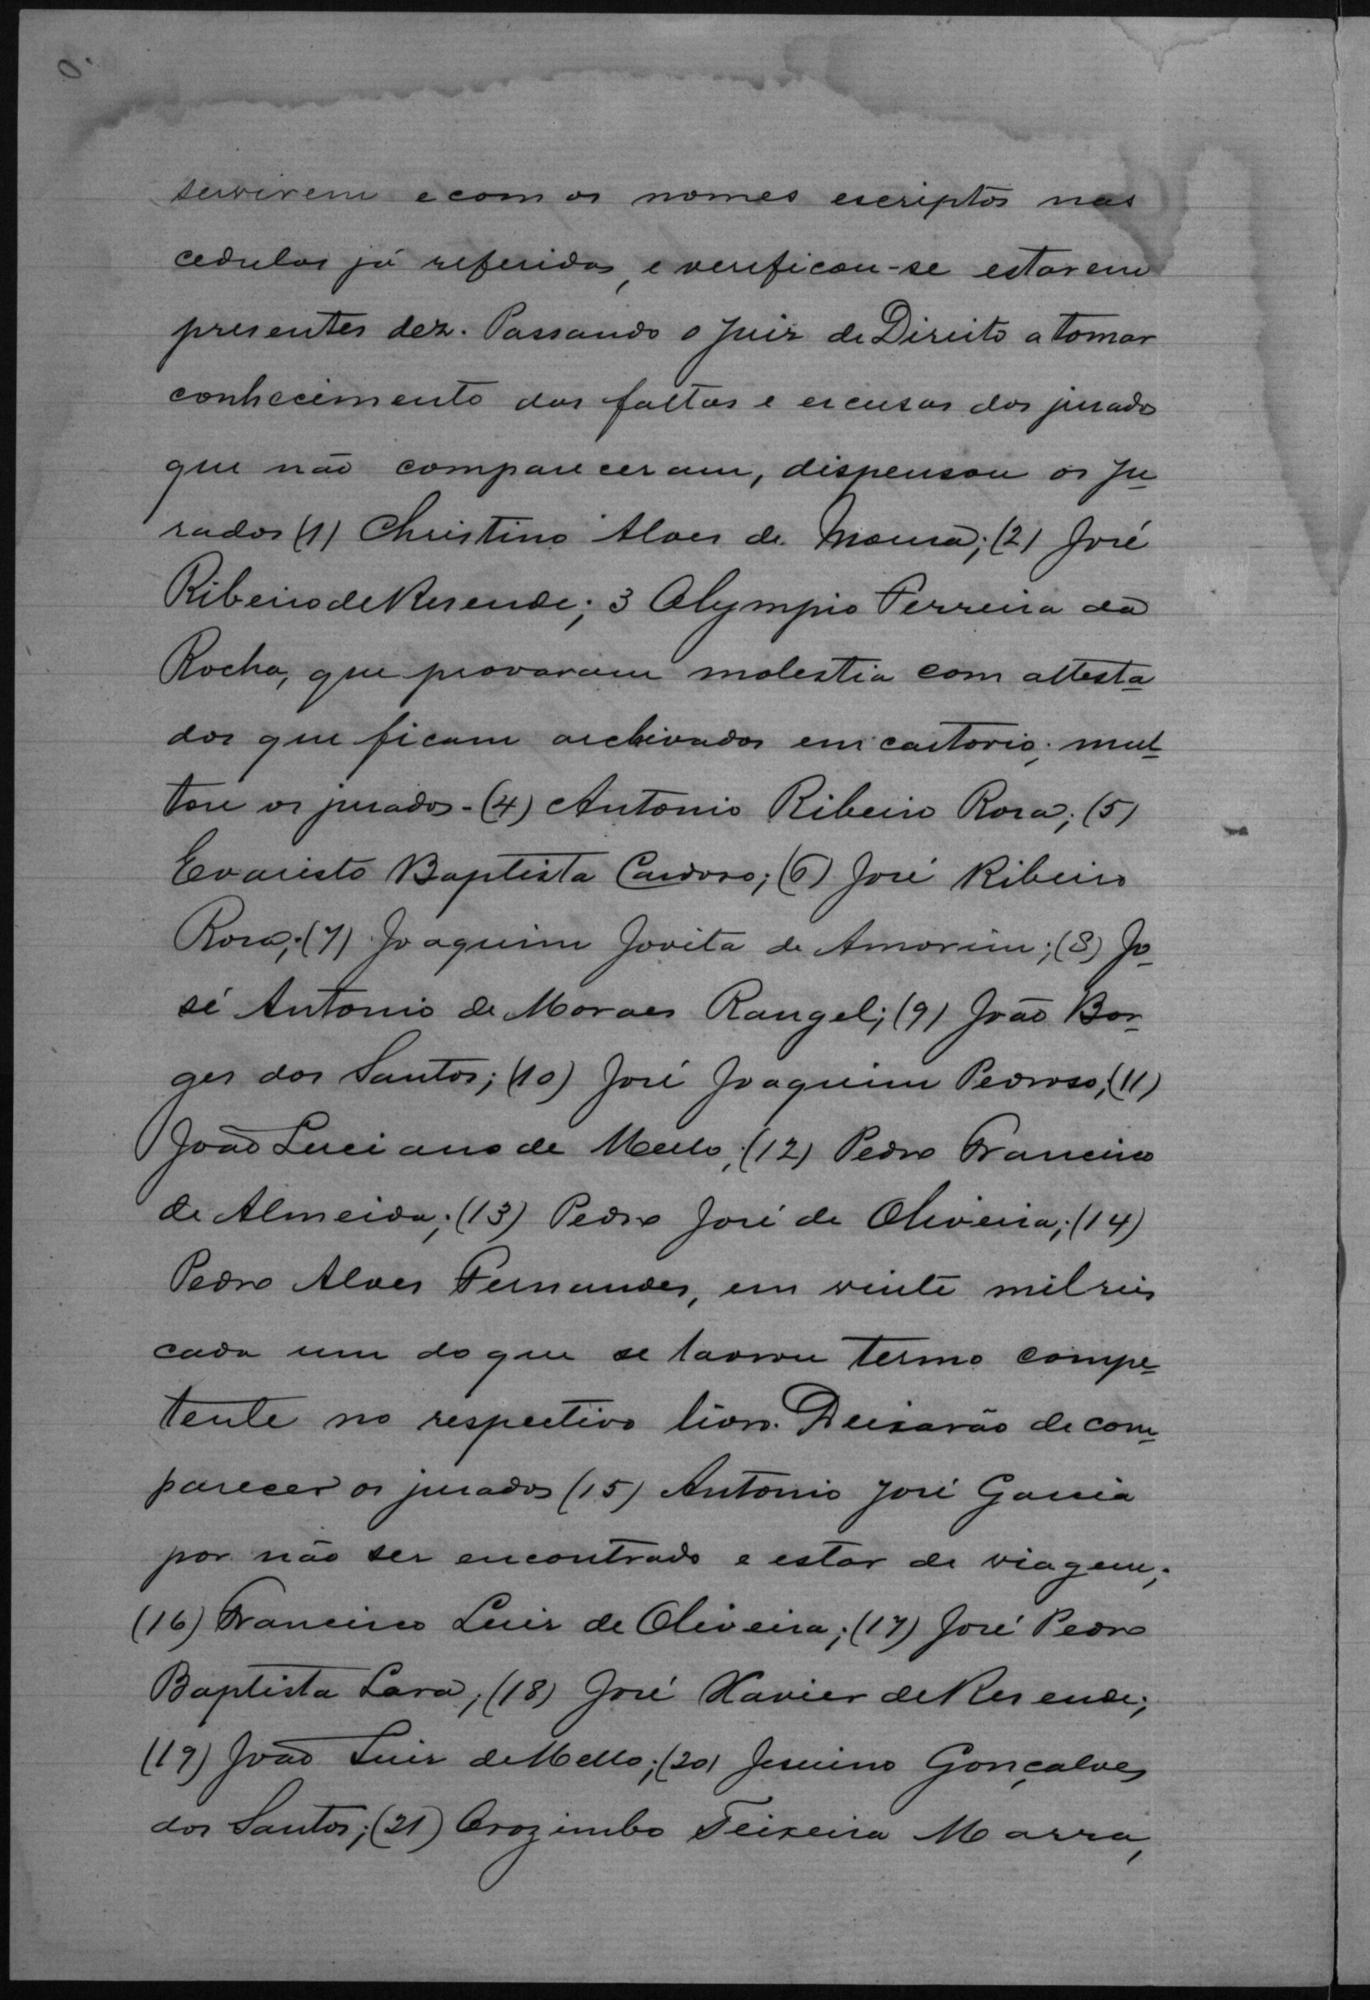 servirem e com os nomes escriptos nas
cedulas já referidas, e verificou-se estarem
presentes dez. Passando o Juiz de Direito a tomar
conhecimento das faltas e escusas dos jurados
que não compareceram, dispensou os Ju-
rados (1) Christino Alves de Moura; (2) José
Ribeiro de Resende; 3 Olympio Ferreira da
Rocha, que provaram molestia com attesta-
dos que ficam archivados em cartorio; mul-
tou os jurados - (4) Antonio Ribeiro Rosa; (5)
Evaristo Baptista Cardoso; (6) José Ribeiro
Rosa; (7) Joaquim Jovita de Amorim; (8) Jo-
sé Antonio de Moraes Rangel; (9) João Bor-
ges dos Santos; (10) José Joaquim Pedroso; (11)
João Luciano de Mello; (12) Pedro Francisco
de Almeida; (13) Pedro José de Oliveira; (14)
Pedro Alves Fernandes, em vinte mil reis
cada um do que se lavrou termo compe-
tente no respectivo livro. Deixarão de com-
parecer os jurados (15) Antonio José Garcia
por não ser encontrado e estar de viagem;
(16) Francisco Luis de Oliveira; (17) José Pedro
Baptista Lara; (18) José Xavier de Resende;
(19) João Luis de Mello; (20) Jesuino Gonçalves
dos Santos; (21) Orozimbo Teixeira Marra,